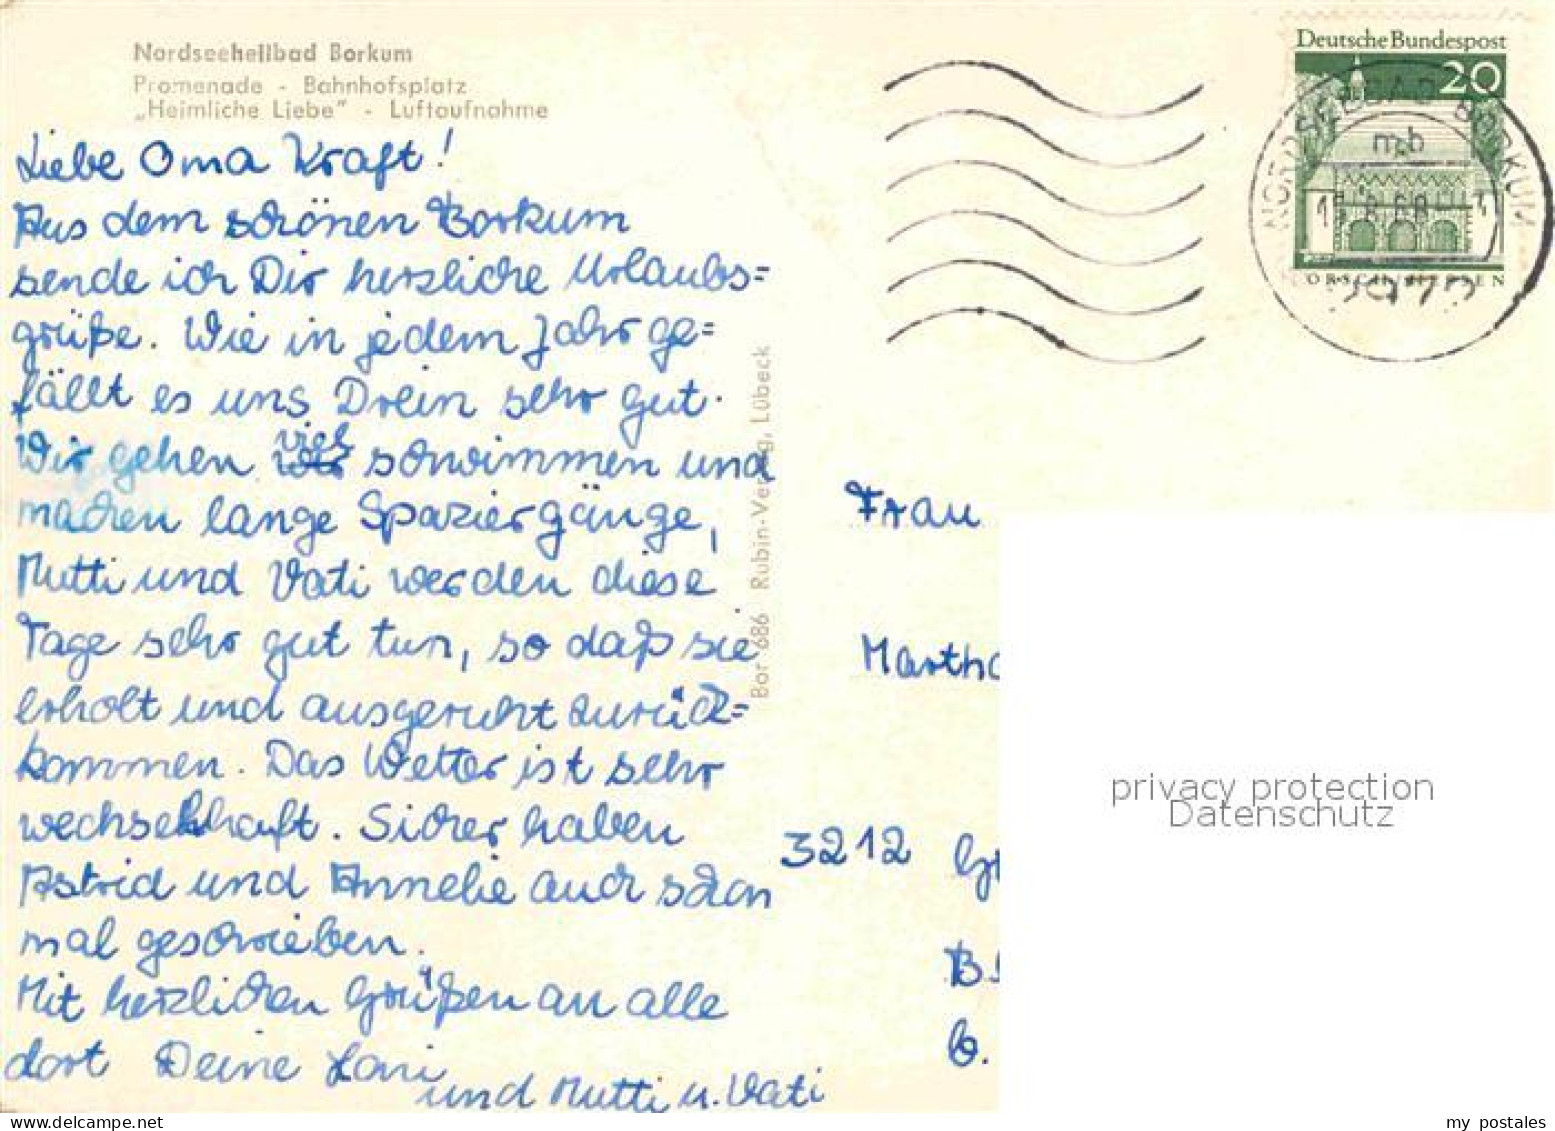 Nordseeheilbad Borkum
Promenade - Bahnhofsplatz
„Heimliche Liebe" - Luftaufnahme
Liebe Oma Kraft!
Aus dem schönen Borkum
sende ich Dir herzliche Urlaubs=
grüße. Wie in jedem Jahr ge=
fällt es uns Drein sehr gut.
Wir gehen viel schwimmen und
machen lange Spaziergänge,
Mutti und Vati werden diese
Tage sehr gut tun, so daß sie
erholt und ausgeruht zurück=
kommen. Das Wetter ist sehr
wechselhaft. Sicher haben
Astrid und Annelie auch schon
mal geschrieben.
Mit herzlichen Grüßen an alle
dort Deine Loni
und Mutti u. Vati
Bor 686 Rubin-Verlag, Lübeck
Deutsche Bundespost
20
NORDSEEBAD BORKUM
mb
2972
Frau
Martha
3212
privacy protection
Datenschutz
my postales